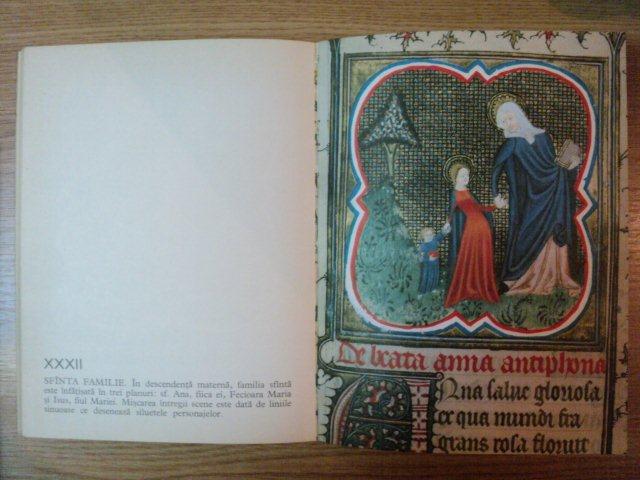 XXXII
SFÎNTA FAMILIE. În descendență maternă, familia sfîntă
este înfățișată în trei planuri: sf. Ana, fiica ei, Fecioara Maria
și Isus, fiul Mariei. Mișcarea întregii scene este dată de liniile
sinuoase ce desenează siluetele personajelor.
De beata anna antiphona
Anna salue gloriosa
ex qua mundi fra
grans rosa floruit